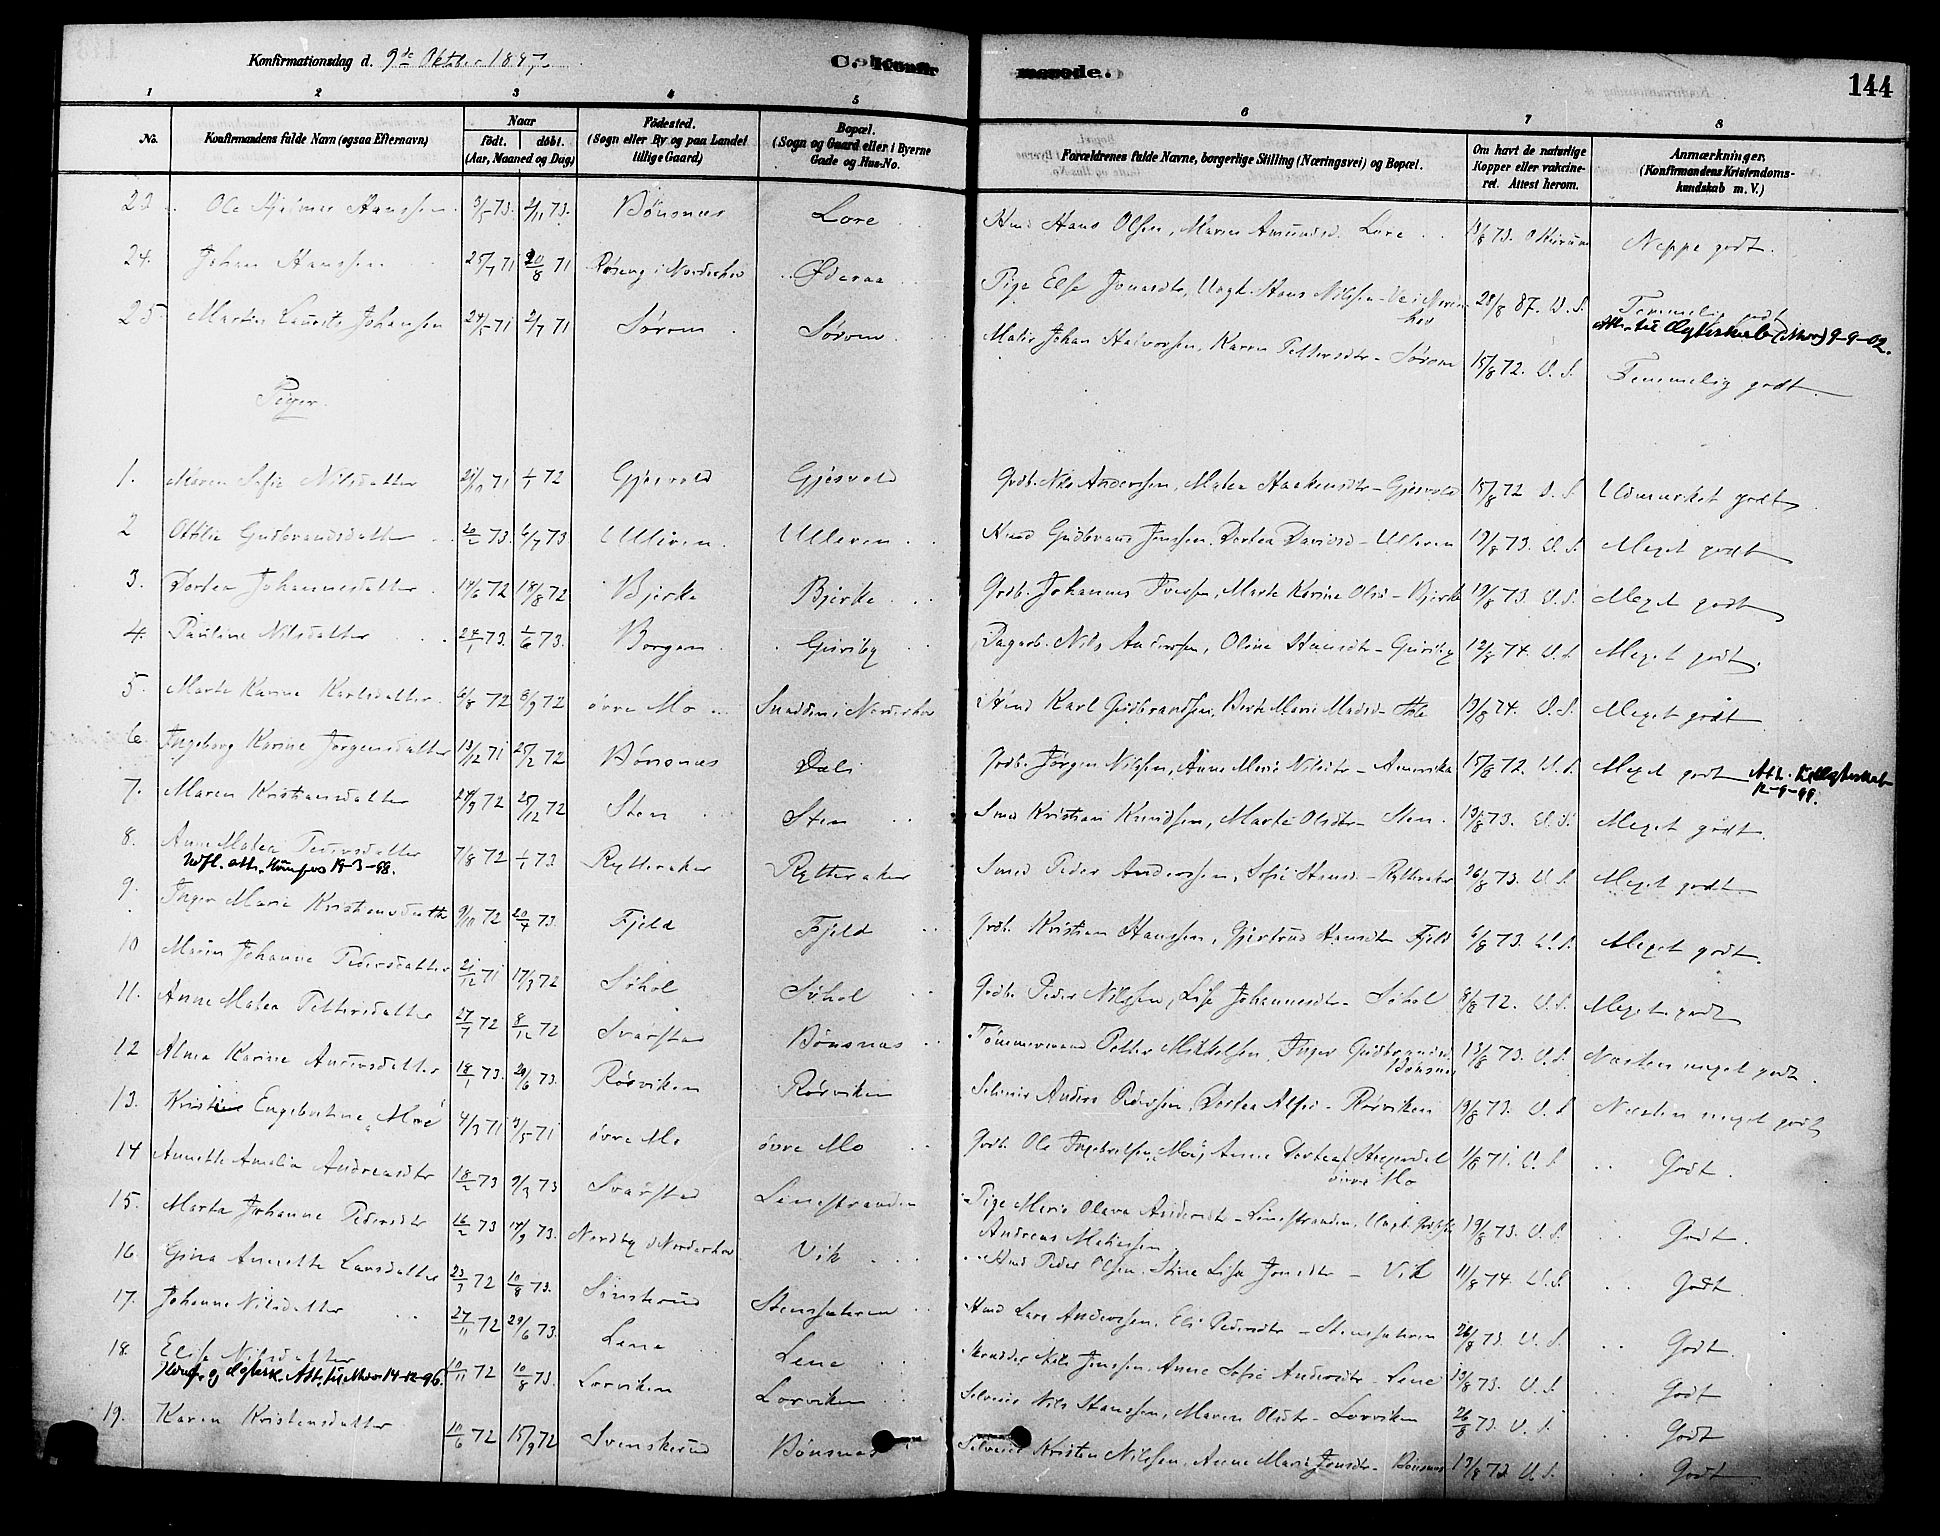 Konfirmationsdag d. 9de Oktober 1887
C. Konfir
merede.
144
1 2 3 4 5 6 7 8
No. Konfirmandens fulde Navn (ogsaa Efternavn) Naar födt. döbt. (Aar, Maaned og Dag) Födested. (Sogn eller By og paa Landet tillige Gaard) Bopæl. (Sogn og Gaard eller i Byerne Gade og Hus-No. Forældrenes fulde Navne, borgerlige Stilling (Næringsvei) og Bopæl. Om havt de naturlige Kopper eller vakcineret. Attest herom. Anmærkninger. (Konfirmandens Kristendomskundskab m. V.)
23. Ole Hjelmer Hanssen 3/5 73. 2/11 73. Bönsnæs Lore Hmd Hans Olsen, Maren Amundsd. Lore 13/8 73. Neppe godt.
24. Johan Hanssen 25/7 71 20/8 71 i Norderhov Öderaa Pige Else Jonasdtr, Ungk. Hans Nilssen 28/8 87. U.S. Temmelig godt
9-9-02.
25 Martin Laurits Johansen 24/5 71 2/7 71 Sörum Sörum Johan Halvorsen, Karen Pettersdtr - Sörum 15/8 72. U.S. Temmelig godt
Piger.
1. Maren Sofie Nilsdatter 21/10 71 1/1 72 Gjesvold Gjesvold Gdb. Nils Anderssen, Matea Haakensdtr - Gjesvold 15/8 72 U.S. Udmærket godt
2 Otilie Gudbrandsdatter 20/2 73. 6/7 73 Ulleren Ulleren Hmd Gudbrand Jenssen, Dortea Davidsd - Ulleren 19/8 73. U.S. Meget godt
3. Dortea Johannesdatter 14/6 72 18/8 72 Bjerke Bjerke Gdb. Johannes Iverssen, Marte Karine Olsd - Bjerke 19/8 73. U.S. Meget godt
4. Pauline Nilsdatter 24/1 73. 1/6 73. Borgen Gjesiby Dagarb. Nils Anderssen, Oline Hansdtr - 12/8 74. U.S. Meget godt.
5. Marte Karine Karlsdatter 6/8 72 8/9 72 övre Mo i Norderhov Hmd Karl Gudbrandssen, Berte Marie Madsd - 19/8 74. U.S. Meget godt
6 Ingeborg Karine Jörgensdatter 19/12 71 25/2 72 Bönsnæs Dali Gdb. Jörgen Nilssen, Anne Marie Nilsdtr - Amerika 15/8 72. U.S. Meget godt Att.
12-9-99.
7. Maren Kristiansdatter 24/9 72 25/12 72 Sten Sten Smed Kristian Knudssen, Marte Olsdtr - Sten. 19/8 73. U.S. Meget godt.
8. Anne Matea Pedersdatter 7/8 72 1/1 73 Rytteraker Rytteraker Smed Peder Anderssen, Sofie Hansd - Rytteraker 26/8 73. U.S. Meget godt
Udfl. att. 18-3-98.
9. Inger Marie Kristiansdatter 9/10 72 20/4 73. Fjeld Fjeld Gdb. Kristian Hanssen, Gjertrud Hansdtr Fjeld 6/8 73. U.S. Meget godt.
10 Maren Johanne Pedersdatter 21/12 71 17/3 72 Söhol Söhol Gdb. Peder Nilssen, Lise Johannesdtr - Söhol 8/8 72. U.S. Meget godt
11. Anne Matea Pettersdatter 27/7 72 8/12 72 Svarstad Bönsnæs Tömmermand Petter Mikkelsen, Inger Gudbrandsd. Bönsnæs 13/8 73. U.S. Næsten meget godt.
12 Alma Karine Andersdatter 18/1 73. 29/6 73. Rörviken Rörviken Selveier Anders Pederssen, Dortea Alfsd - Rörviken 19/8 73. U.S. Næsten meget godt
13. Kristine Engebertine Moe 4/3 71 9/5 71 övre Mo övre Mo Gdb. Ole Ingebretsen Moe, Anne Dortea övre Mo 11/8 71. U.S. Godt.
14 Annette Amelia Andreasdtr 18/2 73 9/3 73 Svarstad Linestranden Pige Marie Olava Andersdtr - Linestranden, Ungk. Andreas Mathiessen 19/8 73. U.S. Godt.
15. Marte Johanne Pedersdtr 16/2 73 14/9 73. Nordby i Norderhov Vik Hmd Peder Olsen, Stine Lise Jonsdtr - Vik 11/8 74. U.S. Godt.
16. Gina Annette Larsdatter 23/3 72 10/8 73. Sönsterud Stenssæteren Hmd Lars Anderssen, Eli Pedersdtr - Stenssæteren 26/8 73. U.S. Godt.
17. Johanne Nilsdatter 27/11 72 29/6 73. Lene Lene Skrædder Nils Jenssen, Anne Sofie Andersdtr - Lene 19/8 73. U.S. Godt
18. Elise Nilsdatter 10/11 72 10/8 73. Lorviken Lorviken Selveier Nils Hanssen, Maren Olsdtr - Lorviken 26/8 73. U.S. Godt
14-12-96.
19. Karen Kristensdatter 10/6 72 15/9 72 Svenskerud Bönsnæs Selveier Kristen Nilssen, Anne Marie Jonsdtr - Bönsnæs 19/8 73 U.S. Godt